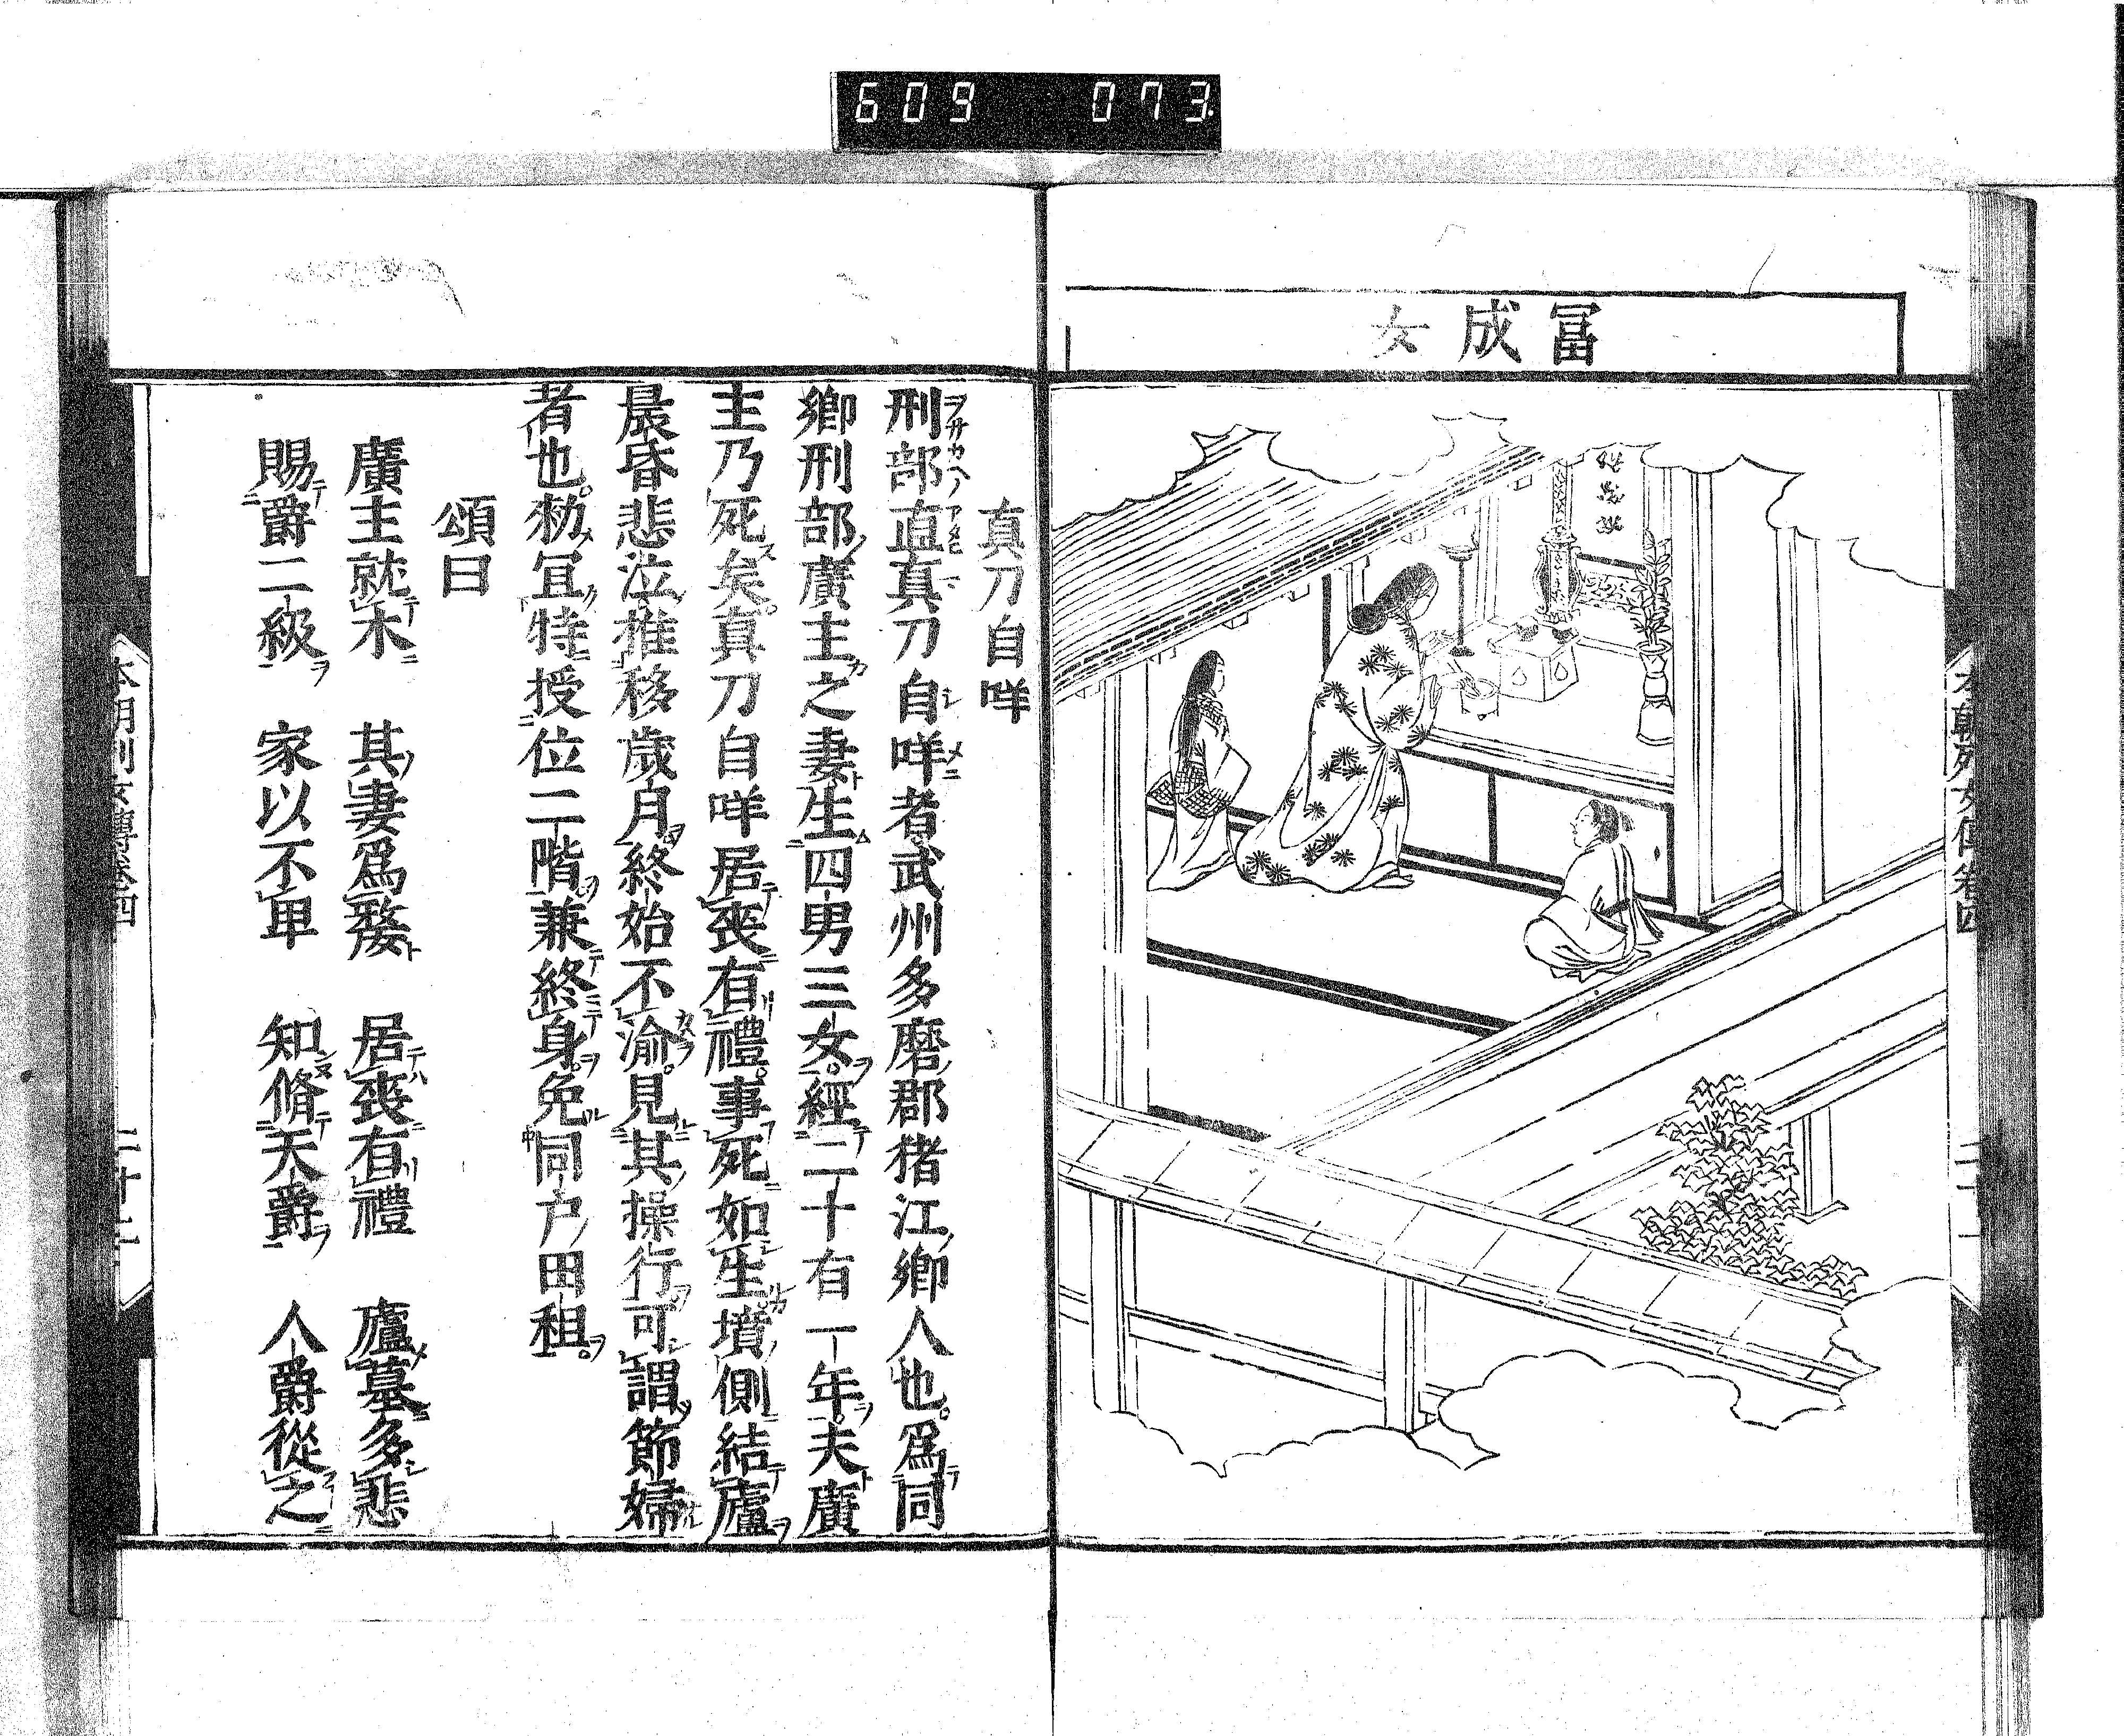 609 073
冨成女
本朝列女傳卷四
真刀自咩
刑部直真刀自咩者武州多磨郡猪江鄉人也爲同
鄉刑部廣主之妻生四男三女經二十有一年夫廣
主乃死矣真刀自咩居喪有禮事死如生墳側結廬
晨昏悲泣推移歲月終始不渝見其操行可謂節婦
者也勑冝特授位二階兼終身免同户田租
頌曰
廣主就木 其妻爲嫠 居喪有禮 廬墓多悲
賜爵二級 家以不卑 知脩天爵 人爵從之
本朝列女傳卷四 二十二